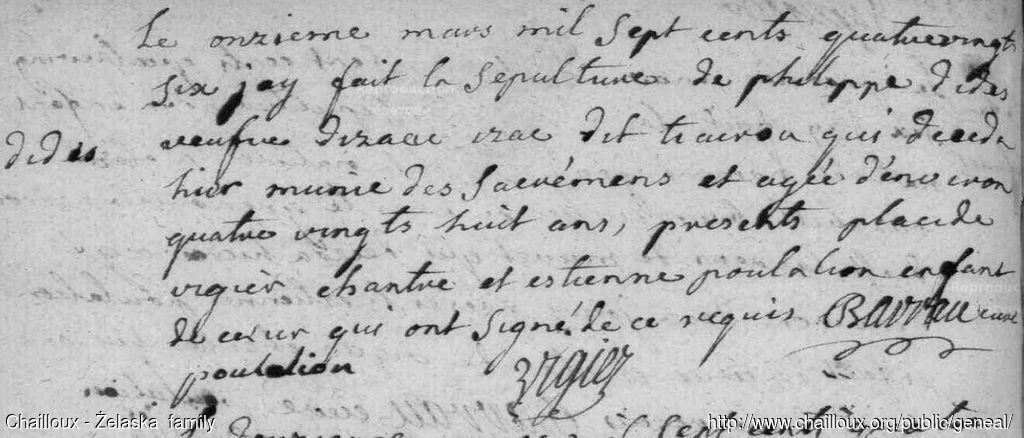 Le onzieme mars mil sept cents quatrevingt
six jay fait la sepulture de philippe dides
dides
veufve dizaac izac dit qui deceda
hier munie des sacrémens et agée d'énviron
quatre vingts huit ans, presents placide
vigier chantre et estienne poutation enfant
de cœur qui ont signé de ce requis Barrau curé
poutation vigier
Chailloux - Żelaska family
http://www.chailloux.org/public/geneal/